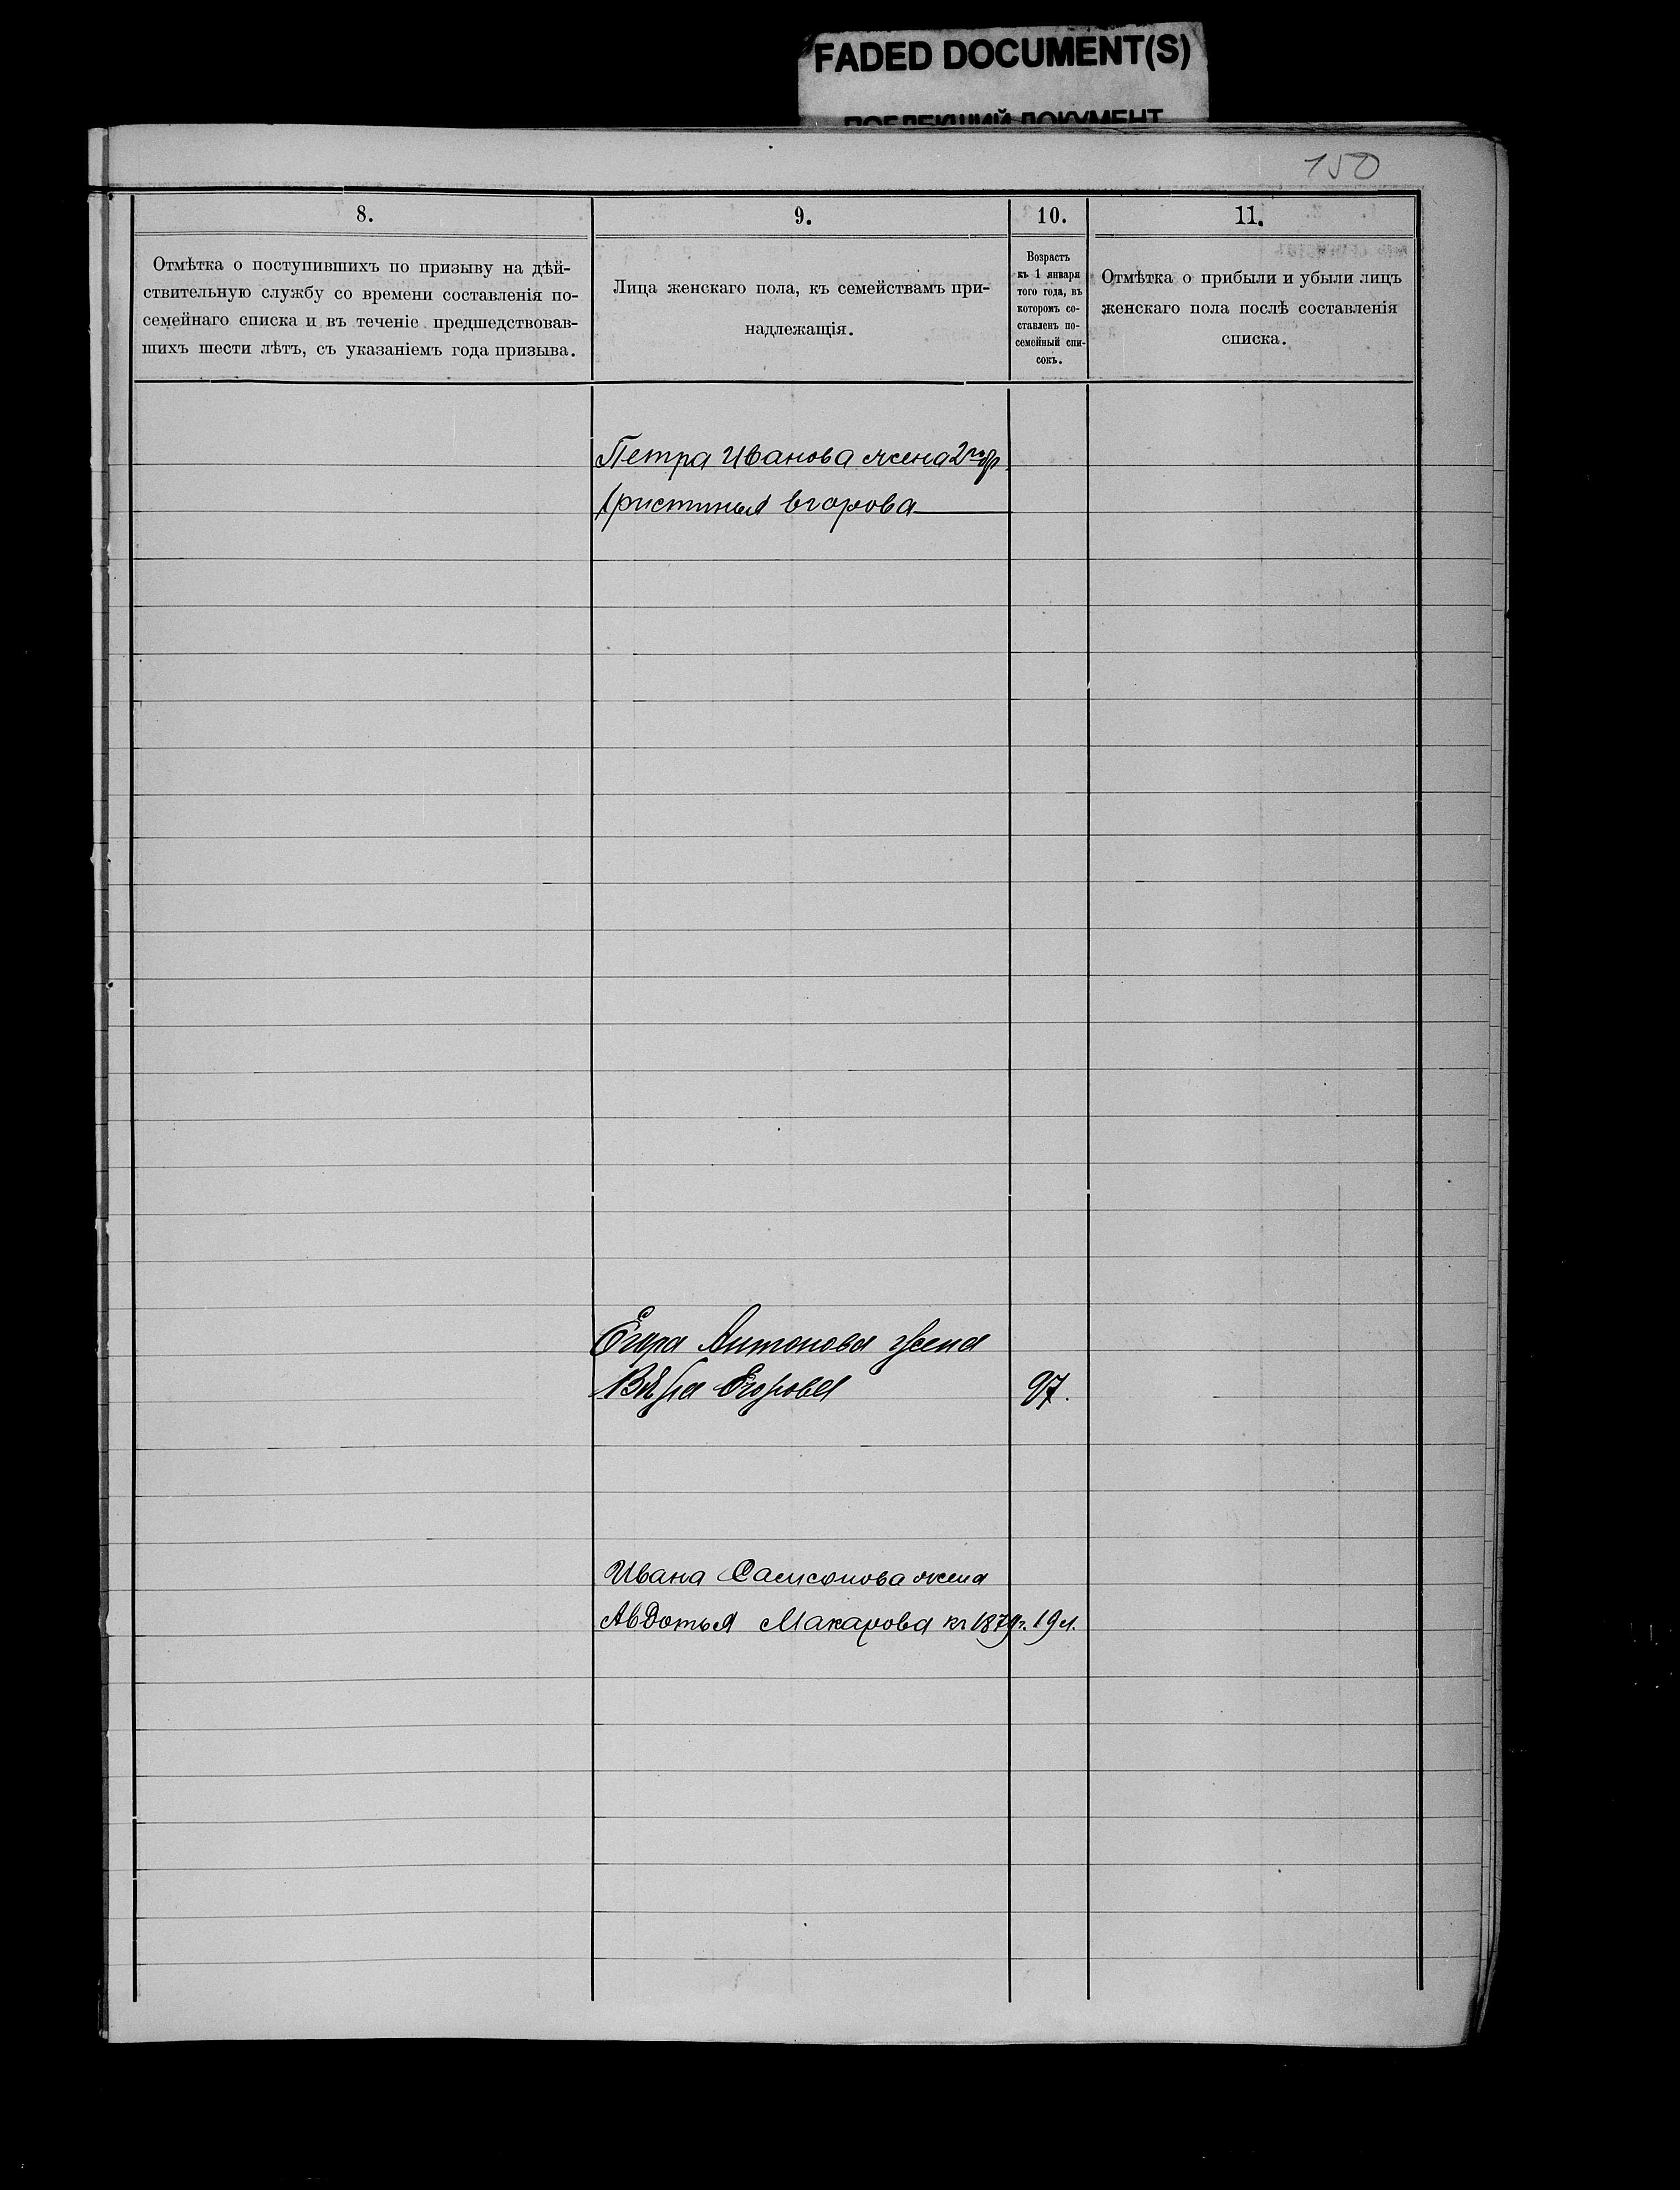 FADED DOCUMENT(S)
ПОБЛЕКШИЙ ДОКУМЕНТ
150
8.
9.
10.
11.
Отмѣтка о поступившихъ по призыву на дѣй-
ствительную службу со времени составленія по-
семейнаго списка и въ теченіе предшедствовав-
шихъ шести лѣтъ, съ указаніемъ года призыва.
Лица женскаго пола, къ семействамъ при-
надлежащія.
Возрастъ
къ 1 января
того года, въ
которомъ со-
ставленъ по-
семейный спи-
сокъ.
Отмѣтка о прибыли и убыли лицъ
женскаго пола послѣ составленія
списка.
Петра Иванова жена 2го бр
Христинья Егорова
Егора Антонова жена
Вѣра Егорова
97.
Ивана Самсонова жена
Авдотья Макарова къ 1879 г. 19 л.